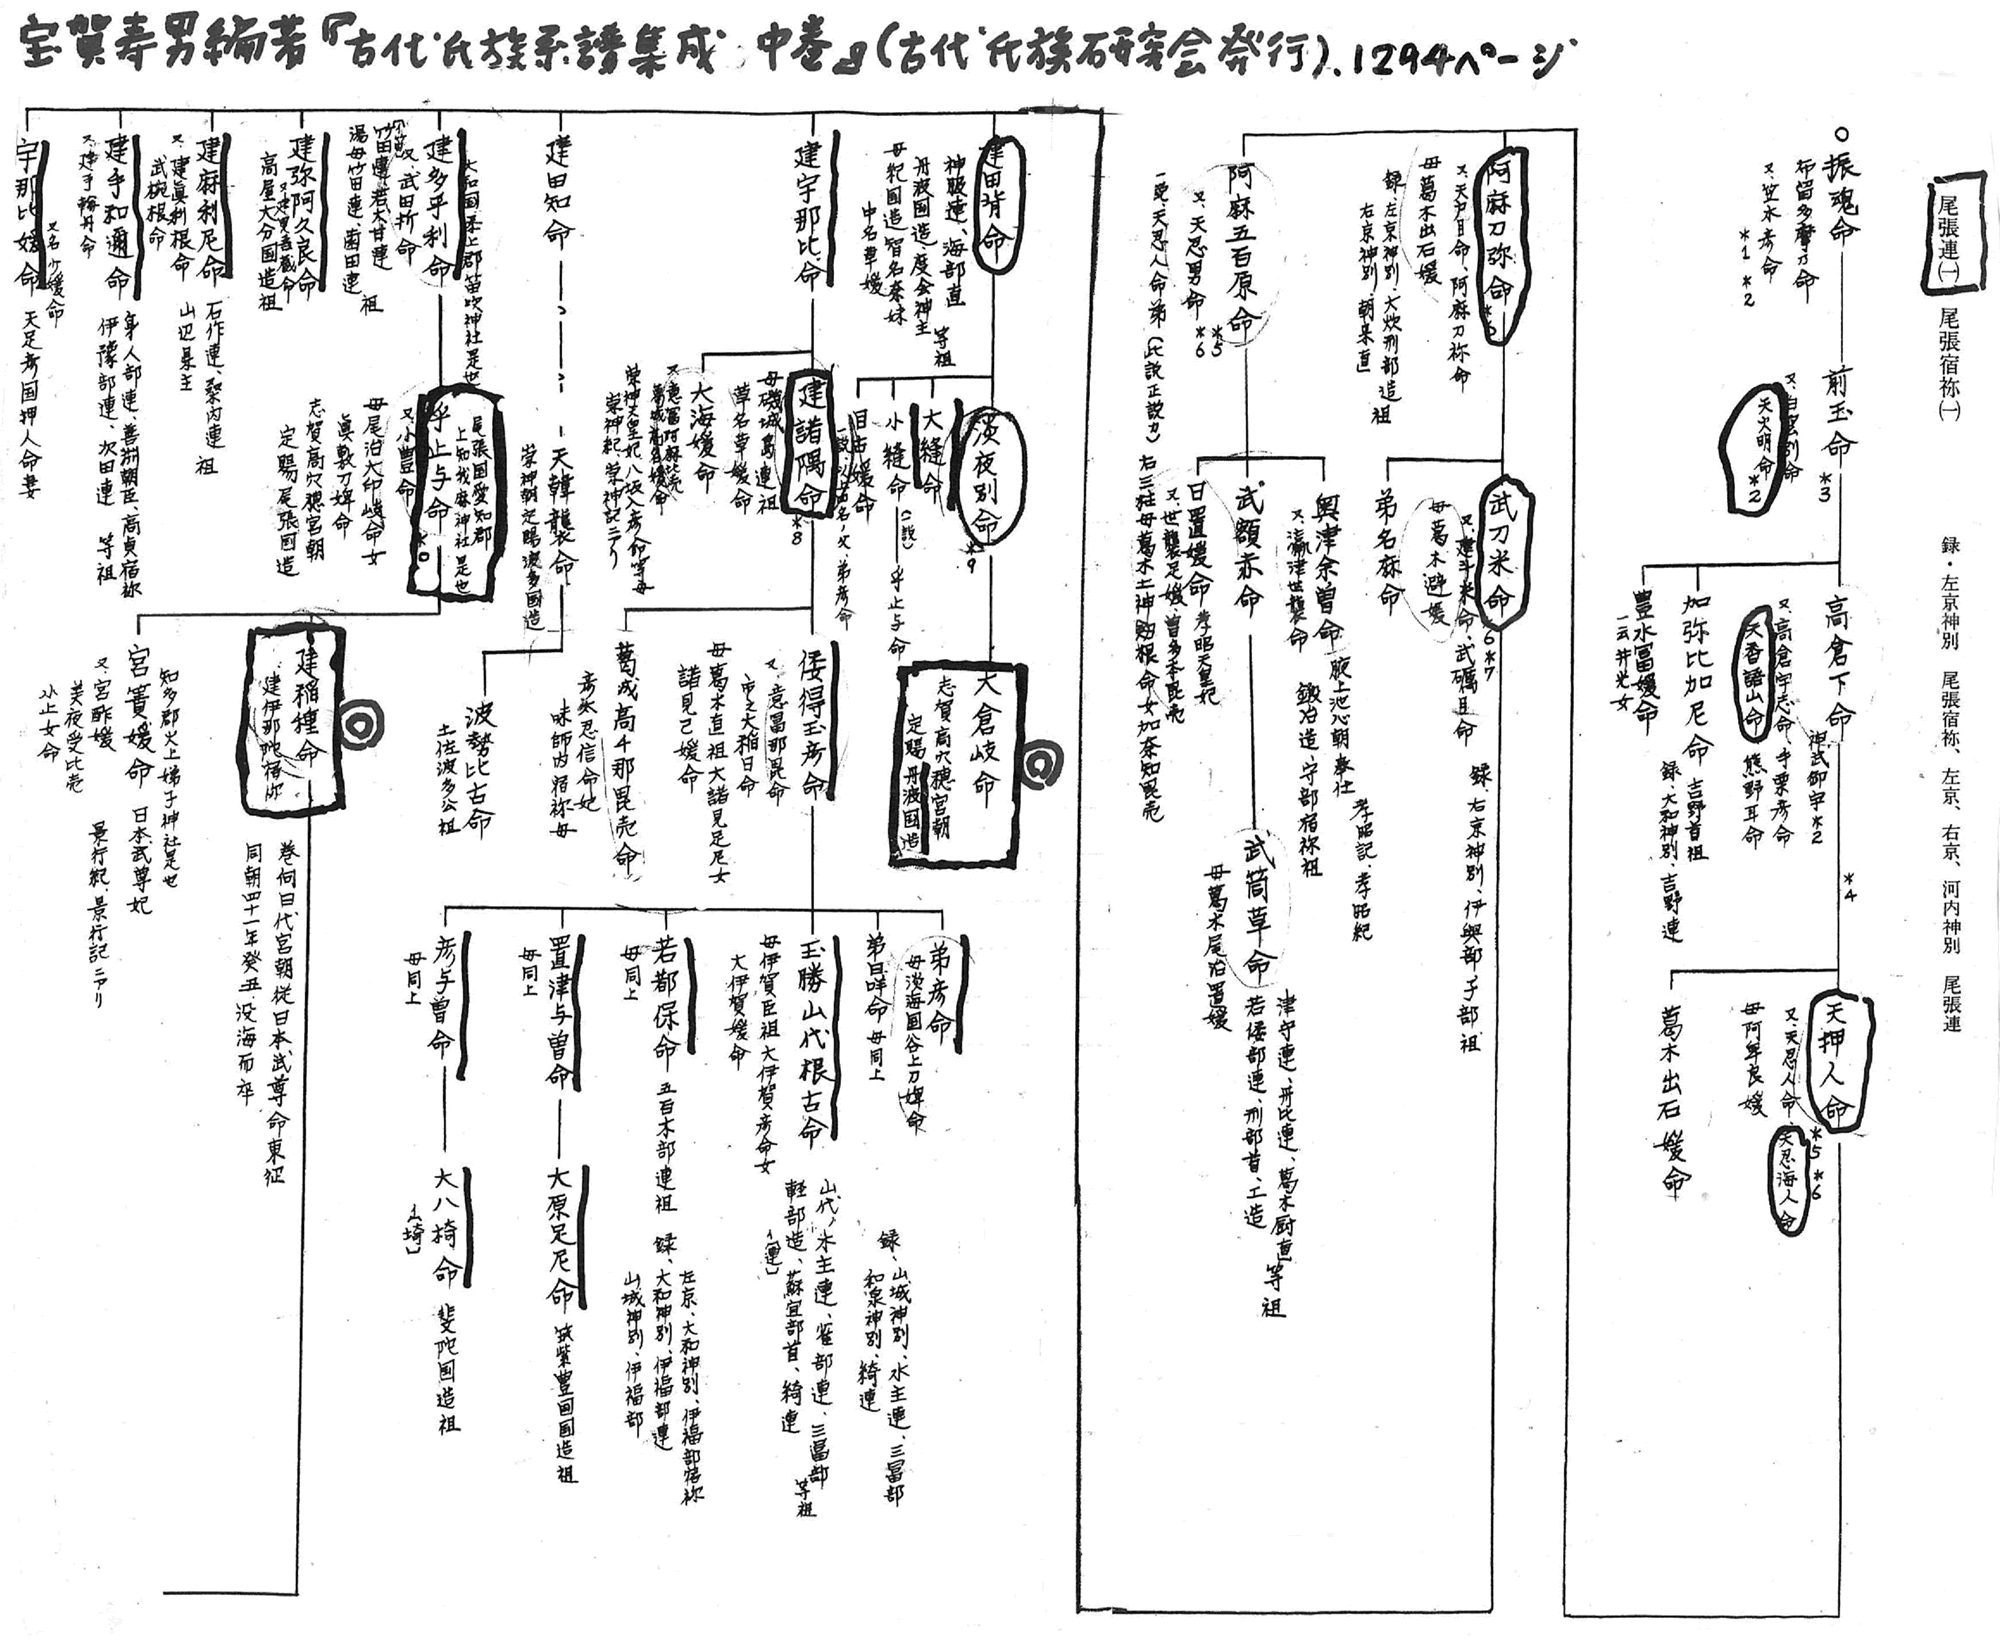 宝賀寿男編著『古代氏族系譜集成 中巻』(古代氏族研究会発行)、1294ページ
尾張連㈠
尾張宿祢㈠
録・左京神別 尾張宿祢、左京、右京、河内神別 尾張連
振魂命
布留多摩乃命
又、笠水彦命
*1 *2
前玉命
*3
又、白雲別命
天火明命*2
高倉下命
神武御宇*2
又、高倉宇志命、手栗彦命
天香語山命
熊野耳命
加弥比加尼命
吉野首祖
録、大和神別、吉野連
豊水富媛命
一云井光女
*4
天押人命
*5 *6
又天忍人命、天忍海人命
母阿牟良媛
葛木出石媛命
阿麻刀弥命
又、天戸目命、阿麻刀祢命
母葛木出石媛
録、左京神別、大炊刑部造
右京神別、朝来直
祖
阿麻五百原命
*5
*6
又、天忍男命
一説、天忍人命弟(此説正説カ)
武刀米命
*6 *7
又、建斗米命、武礪目命
母葛木避媛
録、右京神別、伊与部、子部、祖
弟名麻命
奥津余曽命
又、瀛津世襲命
腋上池心朝奉仕
孝昭記、孝昭紀
鍛冶造、守部宿祢祖
武額赤命
日置媛命
孝昭天皇妃
又、世襲足媛、曽多本毘売
右三柱母葛木土神剱根命女加奈知毘売
武筒草命
母葛木尾治置媛
津守連、丹比連、葛木厨直
若倭部連、刑部首、工造
等祖
建田背命
神服連、海部直
丹波国造、度会神主
等祖
母紀国造智名亥妹
中名草媛
淡夜別命
*9
大縫命
小縫命
(一説)
乎止与命
目古媛命
大倉岐命
志賀高穴穂宮朝
定賜丹波国造
建宇那比命
建諸隅命
*8
母磯城島連祖
草名草媛命
大海媛命
葛城高名媛命
崇神天皇妃八坂入彦命等母
崇神紀、崇神記ニアリ
倭得玉彦命
又、意冨那毘命
市之大稲日命
母葛木直祖大諸見足尼女
諸見己媛命
葛城高千那毘売命
彦太忍信命妃
味師内宿祢母
弟彦命
母淡海国谷上刀婢命
弟日咩命
母同上
玉勝山代根古命
母伊賀臣祖大伊賀彦命女
大伊賀媛命
山代ノ水主連、雀部連、三冨部
軽部造、蘇宜部首、綺連
等祖
録、山城神別、水主連、三冨部
和泉神別、綺連
若都保命
母同上
五百木部連祖
録、
左京、大和神別、伊福部宿祢
大和神別、伊福部連
山城神別、伊福部
置津与曽命
母同上
大原足尼命
筑紫豊国国造祖
彦与曽命
母同上
大八椅命
(埼)
斐陀国造祖
建田知命
天韓襲命
崇神朝定賜波多国造
波勢比古命
土佐波多公祖
建多乎利命
大和国葛上郡笛吹神社是也
又、武田折命
竹田連、若犬甘連
湯母竹田連、菌田連
祖
乎止与命
尾張国愛知郡
上知我麻神社是也
又、小豊命
母尾治大印岐命女
真敷刀婢命
志賀高穴穂宮朝
定賜尾張国造
建稲種命
建伊那陀宿祢
巻向日代宮朝従日本武尊命東征
同朝四十一年癸丑、没海而卒
宮簀媛命
知多郡火上姉子神社是也
又、宮酢媛
美夜受比売
小止女命
日本武尊妃
景行紀、景行記ニアリ
建弥阿久良命
高屋大分国造祖
建麻利尼命
又、建真利根命
武椀根命
石作連、桑内連
山辺県主
祖
建手和邇命
又、建手輪丹命
身人部連、善淵朝臣、高貞宿祢
伊豫部連、次田連
等祖
宇那比媛命
又名少媛命
天足彦国押人命妻